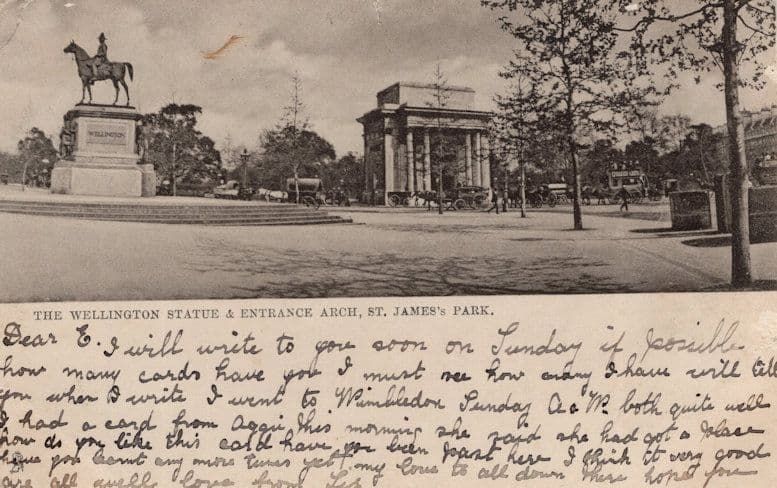 WELLINGTON
THE WELLINGTON STATUE & ENTRANCE ARCH, ST. JAMES's PARK.
Dear E. I will write to you soon on Sunday if possible
how many cards have you I must see how many I have will tell
you when I write I went to Wimbledon Sunday A & W. both quite well
I had a card from Aggie this morning she said she had got a place
how do you like this card have you been past here I think it very good
have you learnt any more tunes yet my love to all down there hope you
are all quite well love from